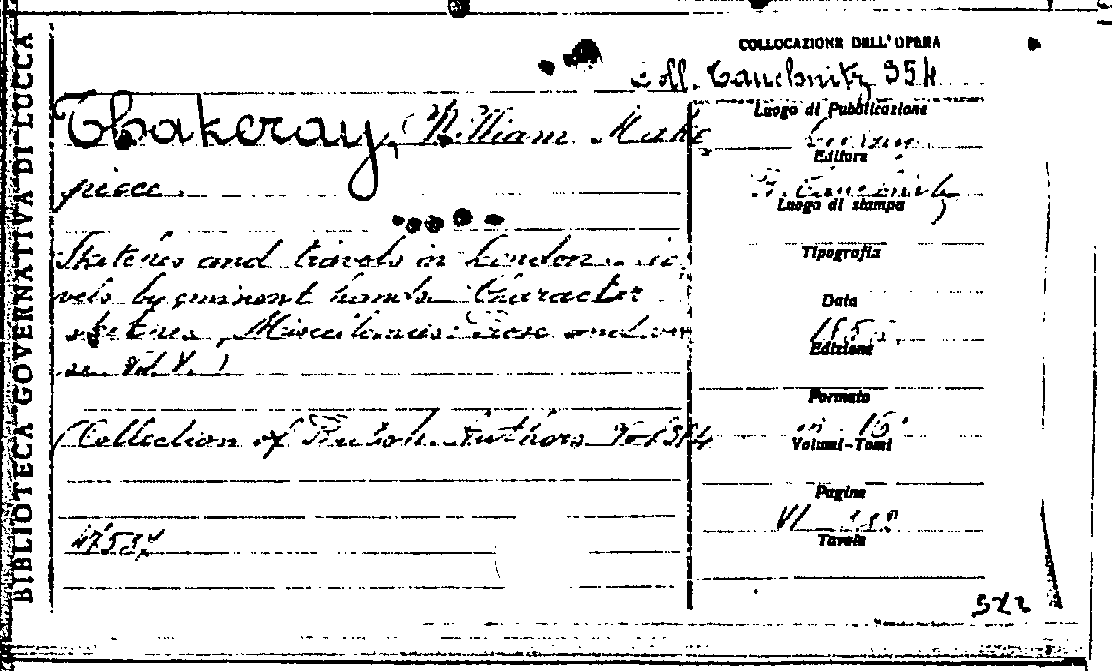 BIBLIOTECA GOVERNATIVA DI LUCCA
COLLOCAZIONE DELL'OPERA
Coll. Tauchnitz 354
Thakeray, (William Make
piece.
Sketches and travels in London.
vels by eminent hands. Character
sketches. (Miscellanies: Prose and ver
se. Vol. V.)
(Collection of British Authors Vol 354
Luogo di Pubblicazione
Editore
B. Tauchnitz
Luogo di stampa
Tipografia
Data
Edizione
Formato
in 16°
Volumi-Tomi
Pagine
VI
Tavole